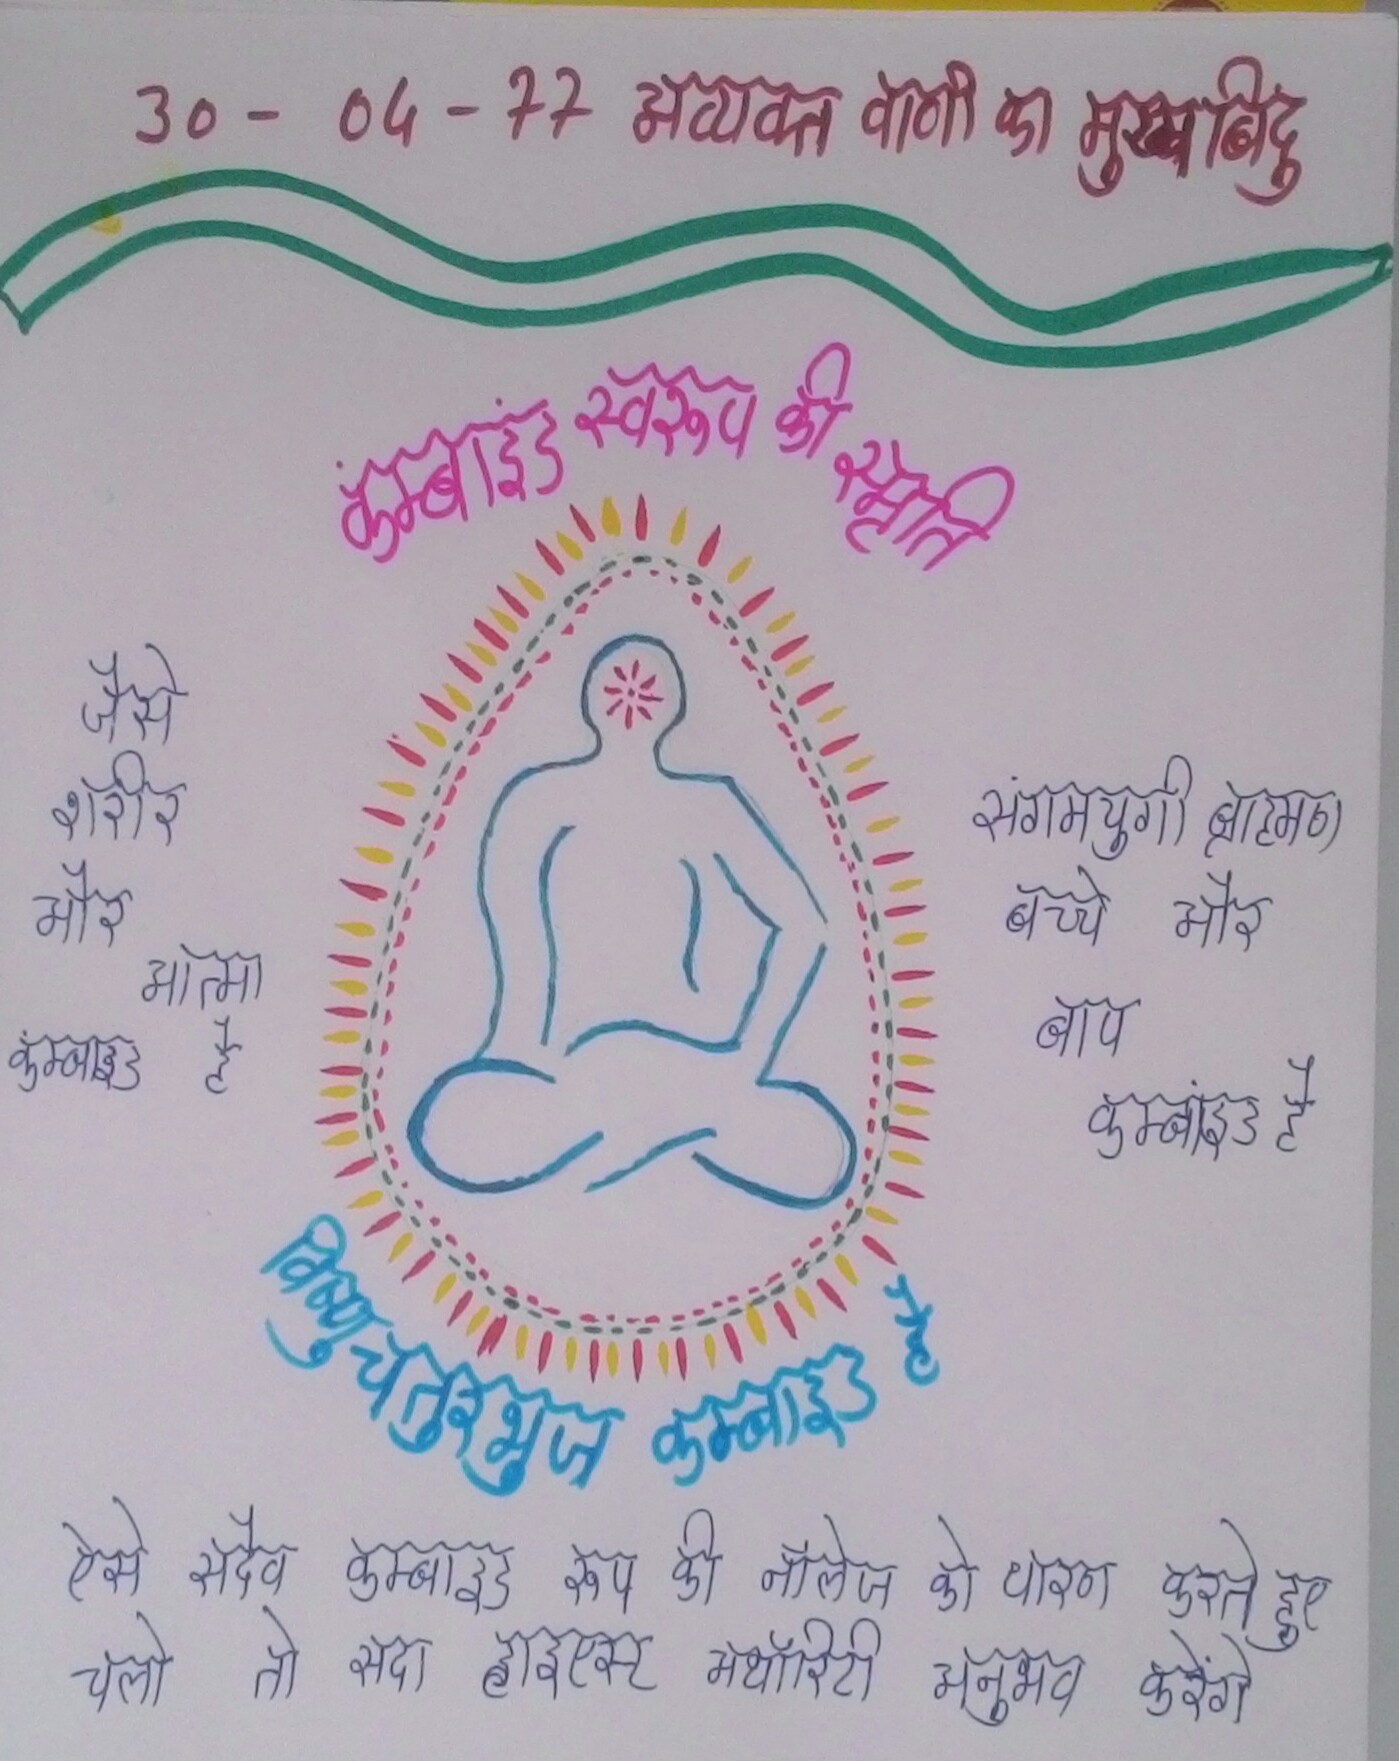 30 - 04 - 77 अव्यक्त वाणी का मुख्य बिंदु
कम्बाइंड स्वरूप की स्मृति
जैसे
शरीर
और
आत्मा
कम्बाइंड है
संगमयुगी ब्राह्मण
बच्चे और
बाप
कम्बांइड है
विष्णु चतुरभुज कम्बाइड है
ऐसे सदैव कम्बाइंड रूप की नॉलेज को धारण करते हुए
चलो तो सदा हाइएस्ट अथॉरिटी अनुभव करेंगे